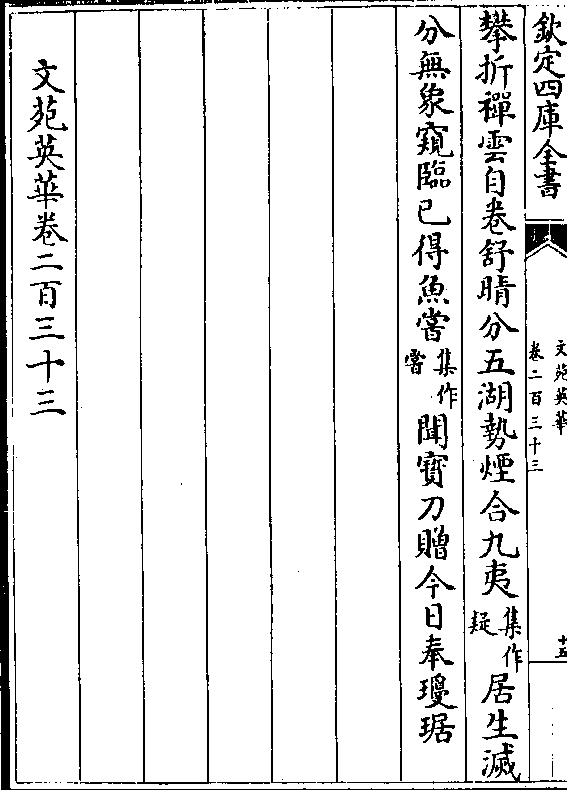 欽定四庫全書
文苑英華
卷二百三十三
十五
攀折禪雲自卷舒晴分五湖勢煙合九夷集作疑居生滅
分無象窺臨已得魚嘗集作甞聞寳刀贈今日奉瓊琚
文苑英華卷二百三十三